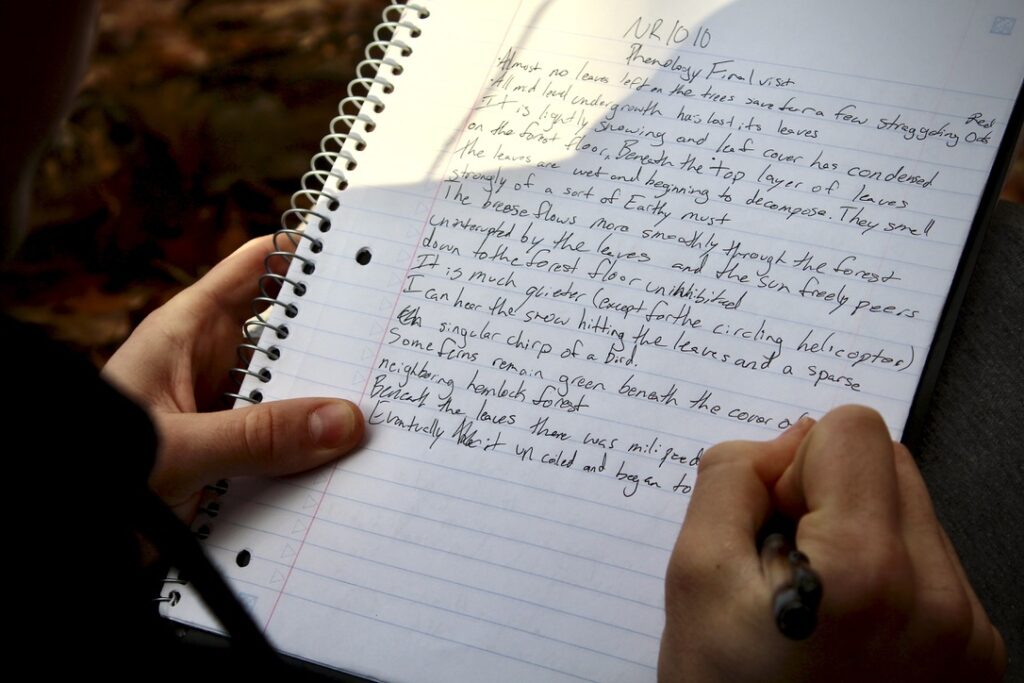 NR 1010
Phenology Final visit
· Almost no leaves left on the trees save for a few straggeling Red Oaks
· All mid level undergrowth has lost its leaves
· It is lightly snowing and leaf cover has condensed
on the forest floor, Beneath the top layer of leaves
the leaves are wet and beginning to decompose. They smell
strongly of a sort of Earthy must
The breese flows more smoothly through the forest
uninterupted by the leaves and the sun freely peers
down to the forest floor uninhibited
It is much quieter (except for the circling helicopter)
I can hear the snow hitting the leaves and a sparse
singular chirp of a bird.
Some ferns remain green beneath the cover
neighboring hemlock forest
Beneath the leaves there was
Eventually it un coled and began to